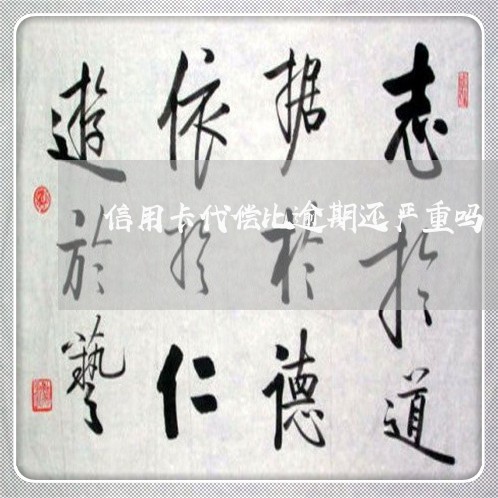 志於道
据於德
依於仁
遊於藝
信用卡代偿比逾期还严重吗